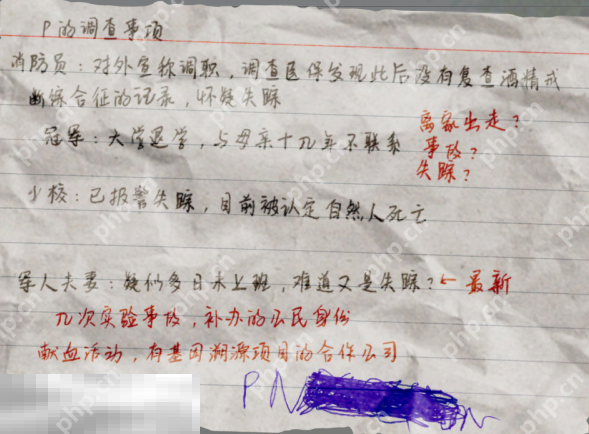 P的调查事项
消防员：对外宣称调职，调查医保发现此后没有复查酒精戒
断综合征的记录，怀疑失踪
冠军：大学退学，与母亲十几年不联系
离家出走？
事故？
失踪？
少校：已报警失踪，目前被认定自然人死亡
军人夫妻：疑似多日未上班，难道又是失踪？←最新
几次实验事故，补办的公民身份
献血活动，有基因溯源项目的合作公司
PN
php.cn